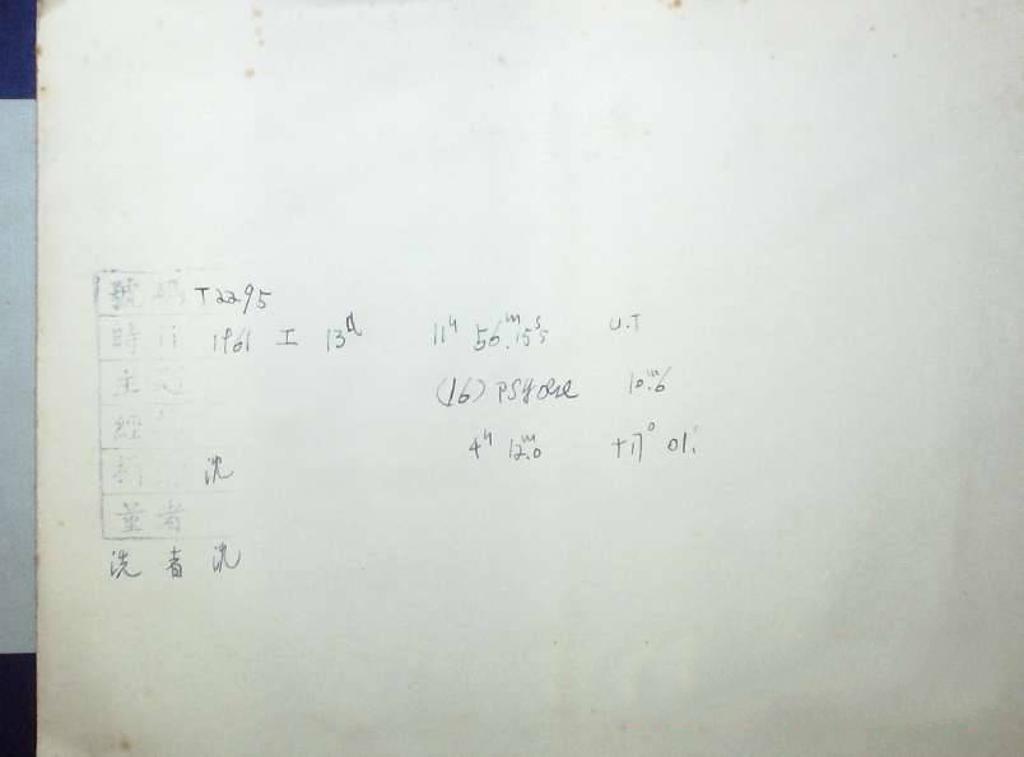 號碼 T2295
時 1961 I 13d 11h 56m.15s U.T
主 (16) PSyche 10.m6
經 4h 12m.0 +17° 01'.
沈
量者
洗者 沈